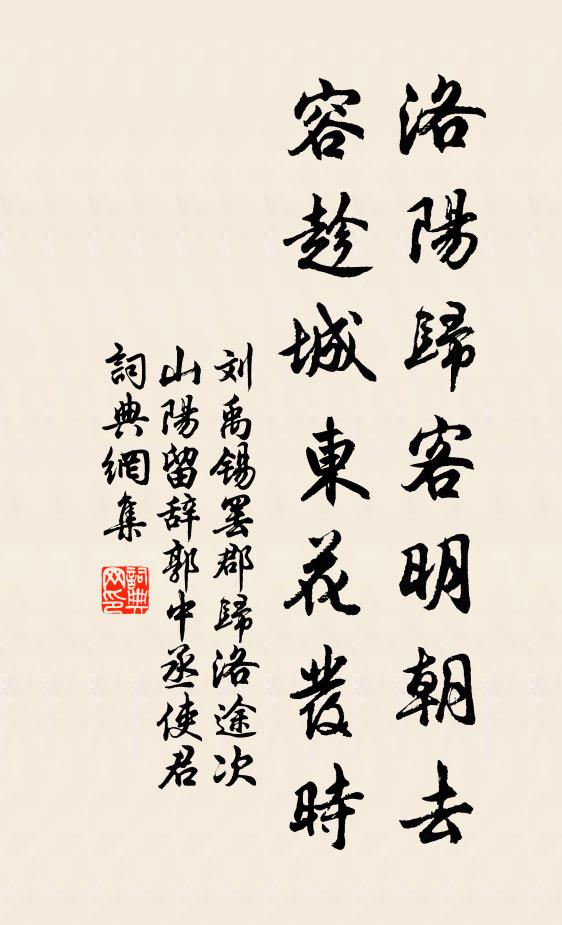 洛陽歸客明朝去
容趁城東花發時
刘禹锡罢郡歸洛途次
山陽留辞郭中丞使君
詞典網集
詞典网印